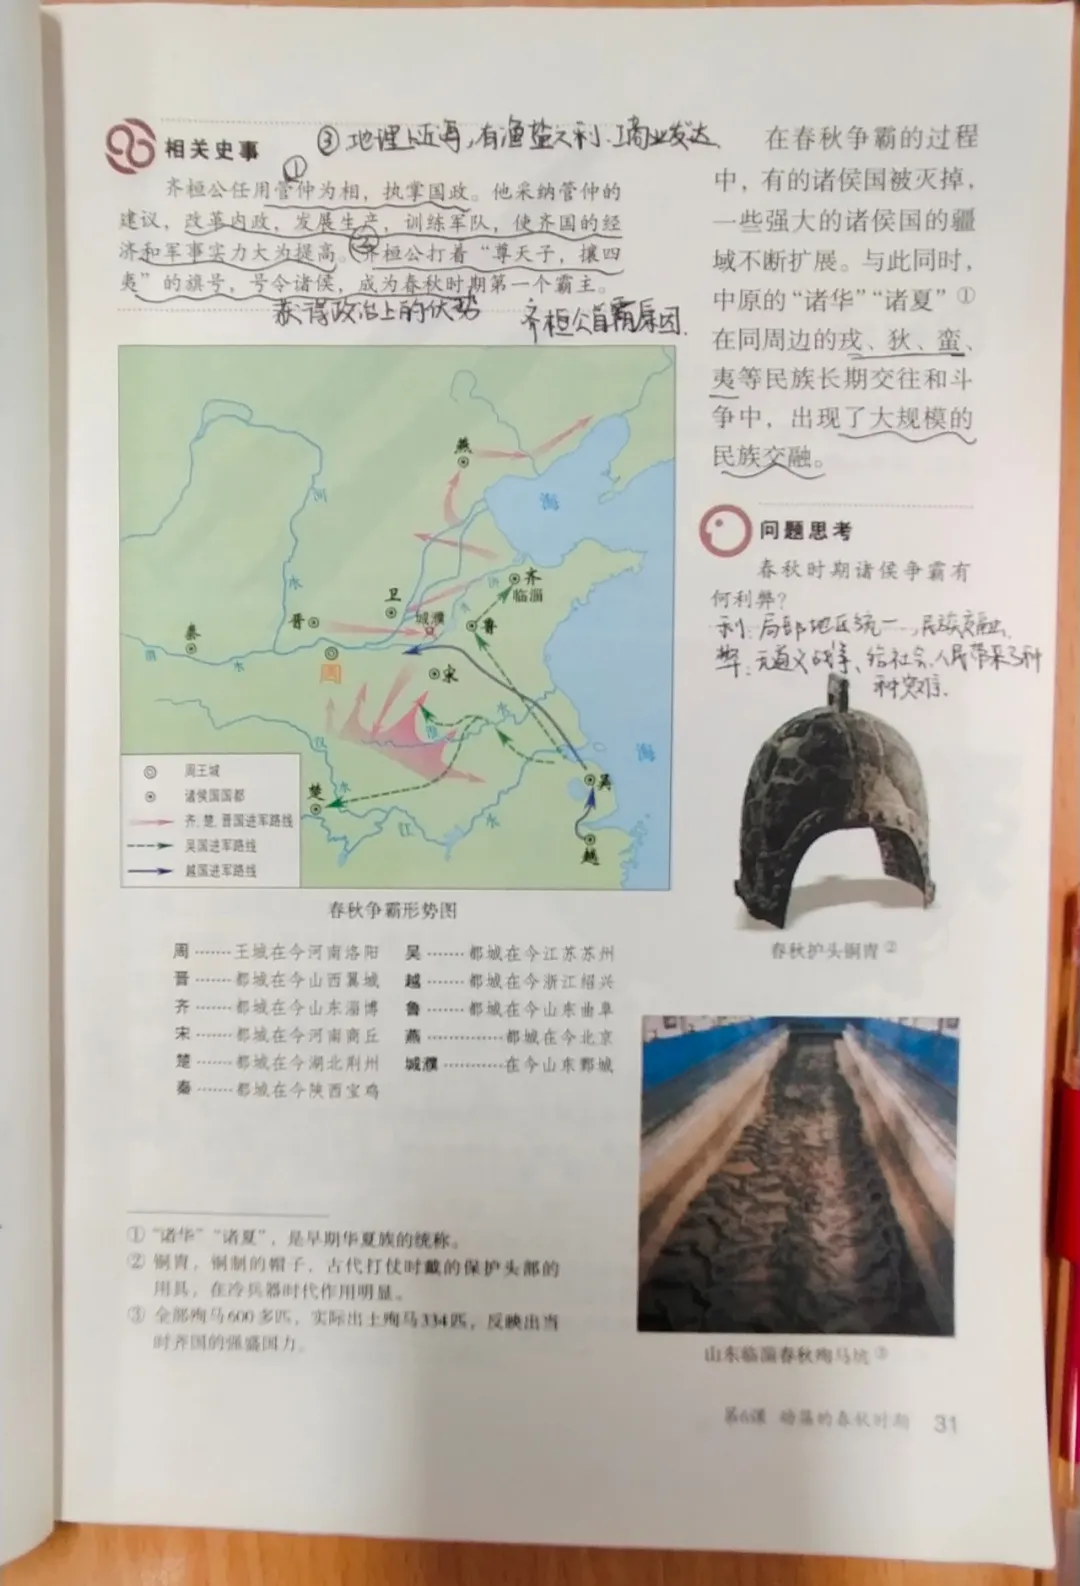 相关史事
③地理上近海,有渔盐之利.工商业发达
①
齐桓公任用管仲为相，执掌国政。他采纳管仲的
建议，改革内政，发展生产，训练军队，使齐国的经
济和军事实力大为提高。②齐桓公打着“尊天子，攘四
夷”的旗号，号令诸侯，成为春秋时期第一个霸主。
获得政治上的优势
齐桓公首霸原因.
燕
海
河
水
齐
临淄
济
水
卫
城濮
晋
鲁
秦
渭
水
周
宋
淮
水
汉
水
楚
江
水
吴
越
海
周王城
诸侯国国都
齐、楚、晋国进军路线
吴国进军路线
越国进军路线
春秋争霸形势图
周……王城在今河南洛阳
晋……都城在今山西翼城
齐……都城在今山东淄博
宋……都城在今河南商丘
楚……都城在今湖北荆州
秦……都城在今陕西宝鸡
吴……都城在今江苏苏州
越……都城在今浙江绍兴
鲁……都城在今山东曲阜
燕…………都城在今北京
城濮………在今山东鄄城
①“诸华”“诸夏”，是早期华夏族的统称。
②铜胄，铜制的帽子，古代打仗时戴的保护头部的
用具，在冷兵器时代作用明显。
③全部殉马600多匹，实际出土殉马334匹，反映出当
时齐国的强盛国力。
在春秋争霸的过程
中，有的诸侯国被灭掉，
一些强大的诸侯国的疆
域不断扩展。与此同时，
中原的“诸华”“诸夏”①
在同周边的戎、狄、蛮、
夷等民族长期交往和斗
争中，出现了大规模的
民族交融。
问题思考
春秋时期诸侯争霸有
何利弊？
利:局部地区统一,民族交融.
弊:无道义战争、给社会.人民带来了种
种灾难.
春秋护头铜胄②
山东临淄春秋殉马坑③
第6课 动荡的春秋时期 31